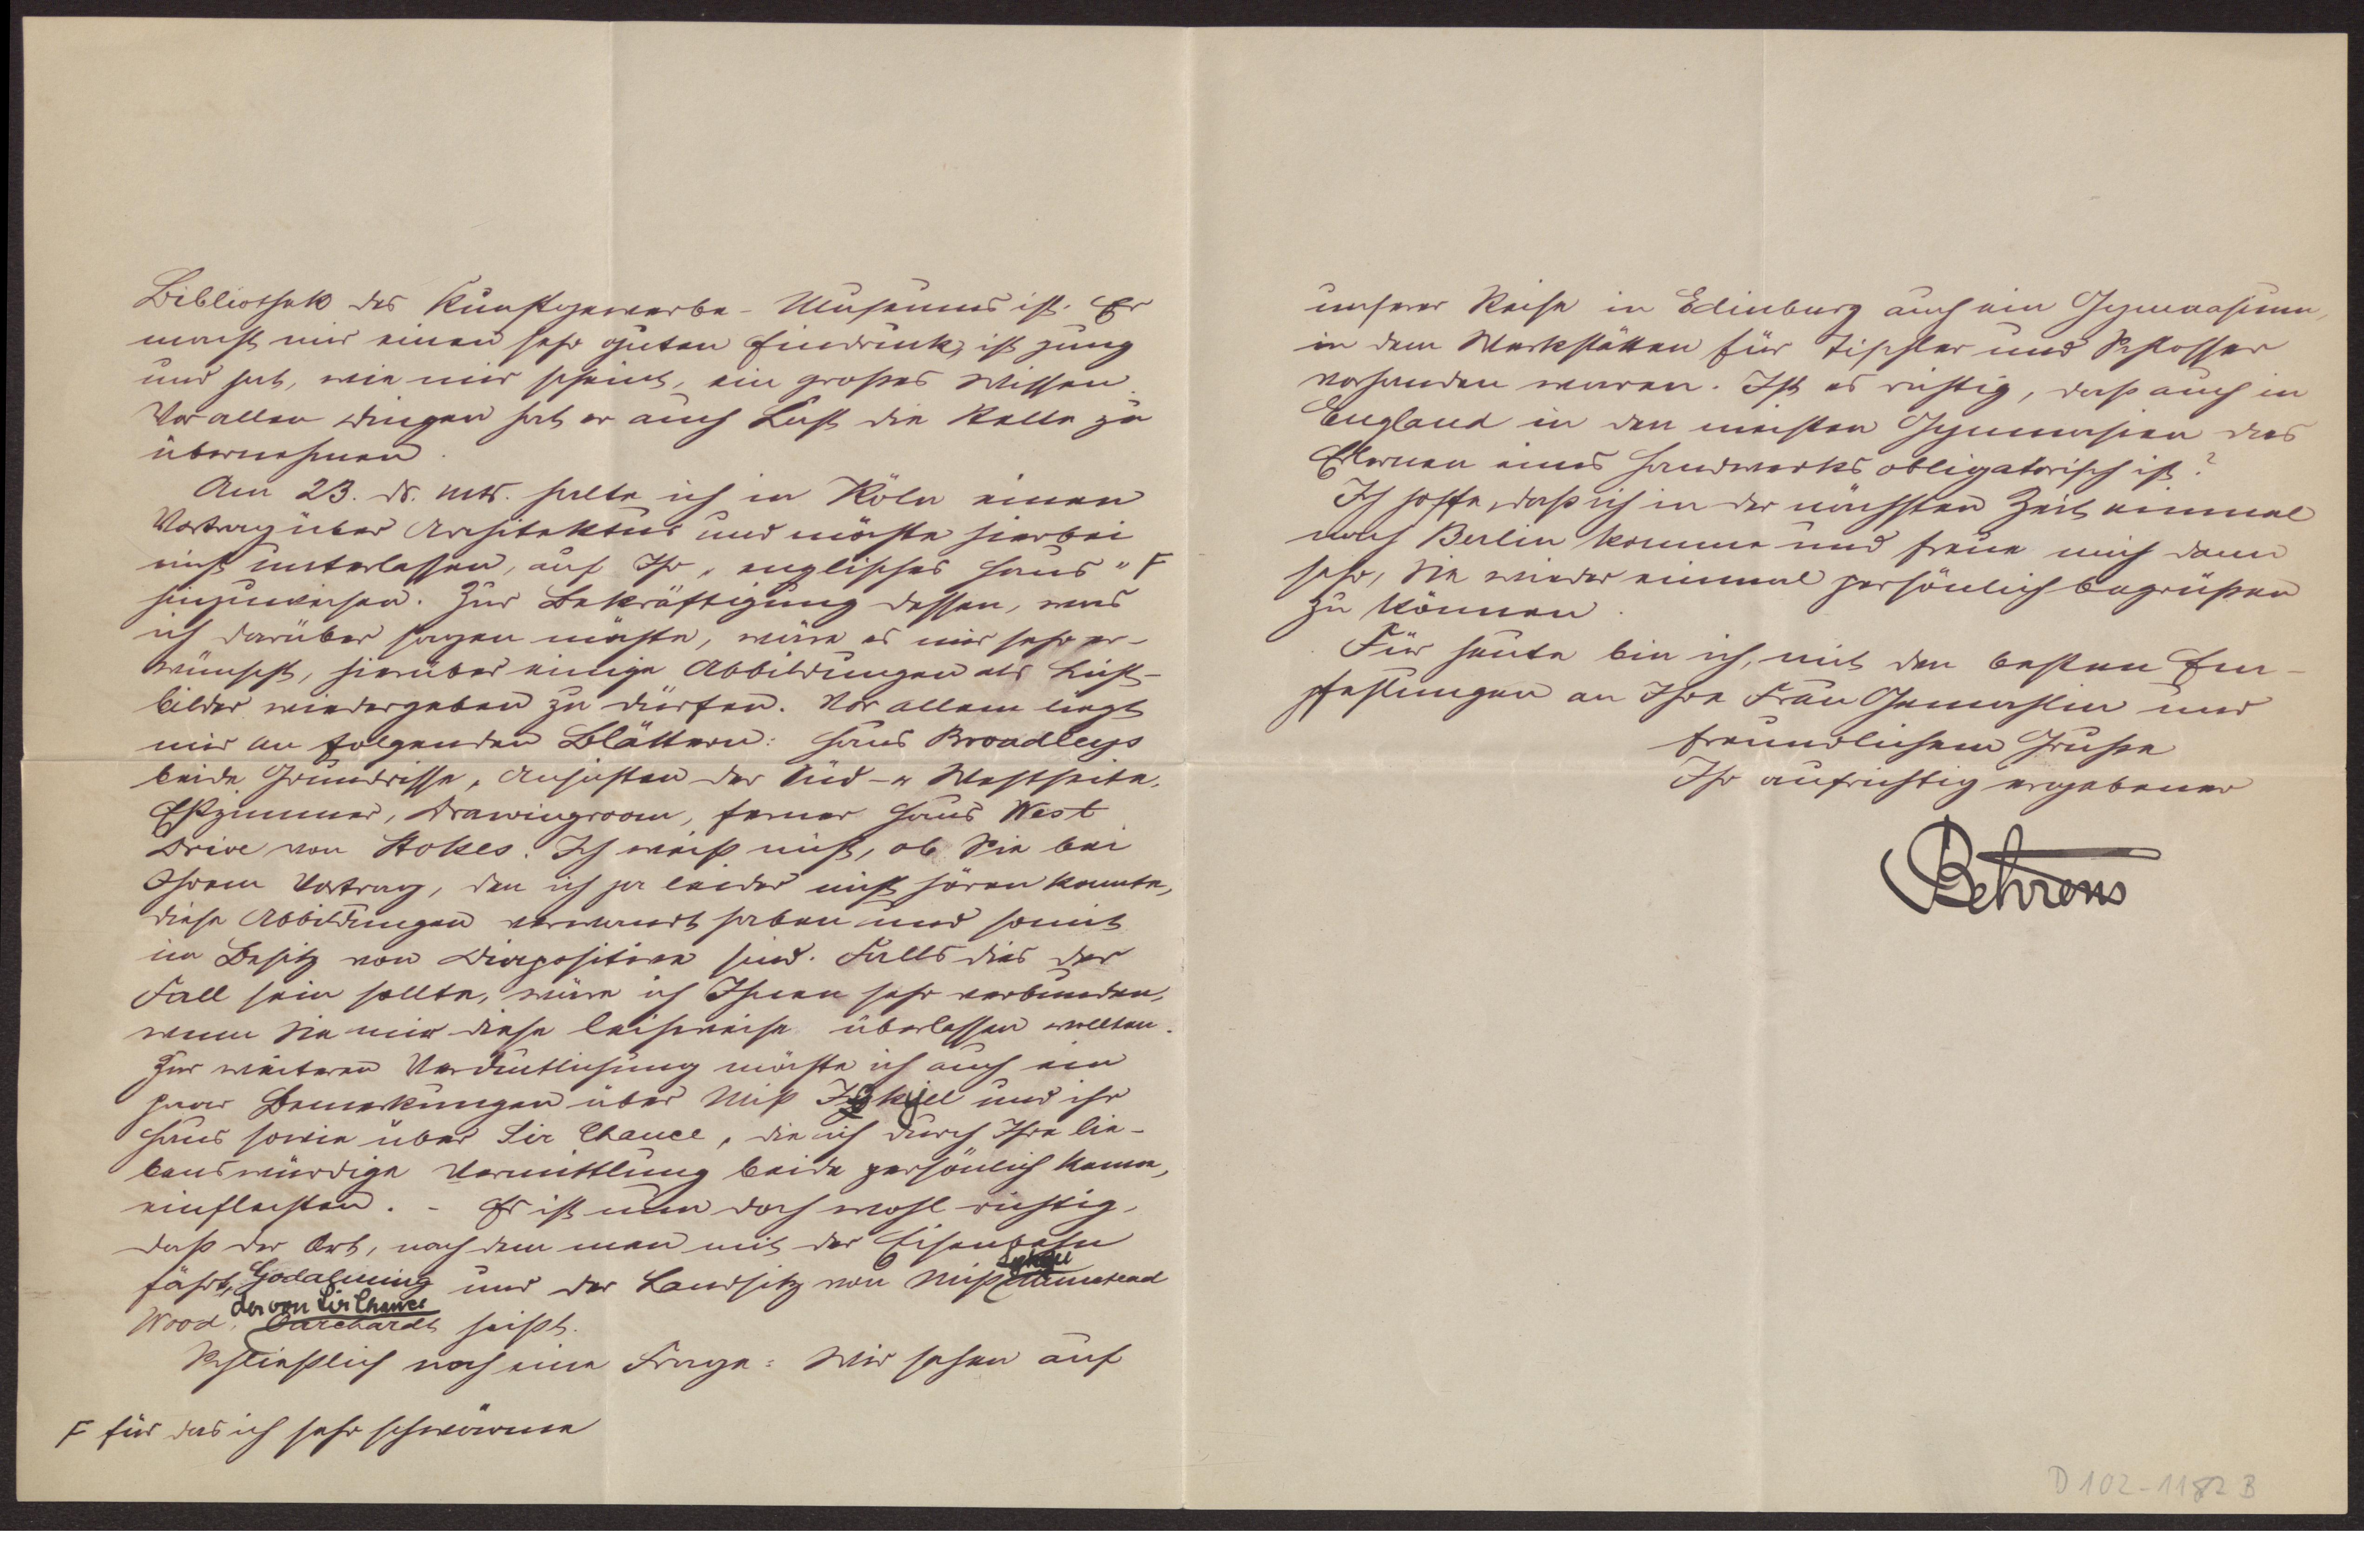 Bibliothek des Kunstgewerbe-Museums ist. Er
macht mir einen sehr guten Eindruck, ist jung
und hat, wie mir scheint, ein großes Wissen.
Vor allen Dingen hat er auch Lust die Stelle zu
übernehmen.
Am 23. ds. Mts. halte ich in Köln einen
Vortrag über Architektur und möchte hierbei
nicht unterlassen, auf Ihr „englisches Haus" F
hinzuweisen. Zur Bekräftigung dessen, was
ich darüber sagen möchte, wäre es mir sehr er-
wünscht, hierüber einige Abbildungen als Licht-
bilder wiedergeben zu dürfen. Vor allem liegt
mir an folgenden Blättern: Haus Broadleys
beide Grundrisse, Ansichten der Süd- u Westseite,
Eßzimmer, Drawingroom, ferner Haus West
Drive von Stokes. Ich weiß nicht, ob Sie bei
Ihrem Vortrag, den ich ja leider nicht hören konnte,
diese Abbildungen verwandt haben und somit
im Besitz von Diapositive sind. Falls dies der
Fall sein sollte, wäre ich Ihnen sehr verbunden,
wenn Sie mir diese leihweise überlassen wollten.
Zur weiteren Verdeutlichung möchte ich auch ein
paar Bemerkungen über Miß Jekyll und ihr
Haus sowie über Sir Chance, die ich durch Ihre lie-
benswürdige Vermittlung beide persönlich kenne,
einflechten. - Es ist nun doch wohl richtig,
daß der Ort, nach dem man mit der Eisenbahn
fährt, Godalming und der Landsitz von Miß Jekyll Munstead
Wood, der von Sir Chance Orchards heißt.
Schließlich noch eine Frage: Wir sahen auf
F für das ich sehr schwärme
unserer Reise in Edinburg auch ein Gymnasium,
in dem Werkstätten für Tischler und Schlosser
vorhanden waren. Ist es richtig, daß auch in
England in den meisten Gymnasien das
Erlernen eines Handwerks obligatorisch ist?
Ich hoffe, daß ich in der nächsten Zeit einmal
nach Berlin komme und freue mich dann
sehr, Sie wieder einmal persönlich begrüßen
zu können.
Für heute bin ich, mit den besten Em-
pfehlungen an Ihre Frau Gemahlin und
freundlichem Gruße
Ihr aufrichtig ergebener
Behrens
D 102-1182 B